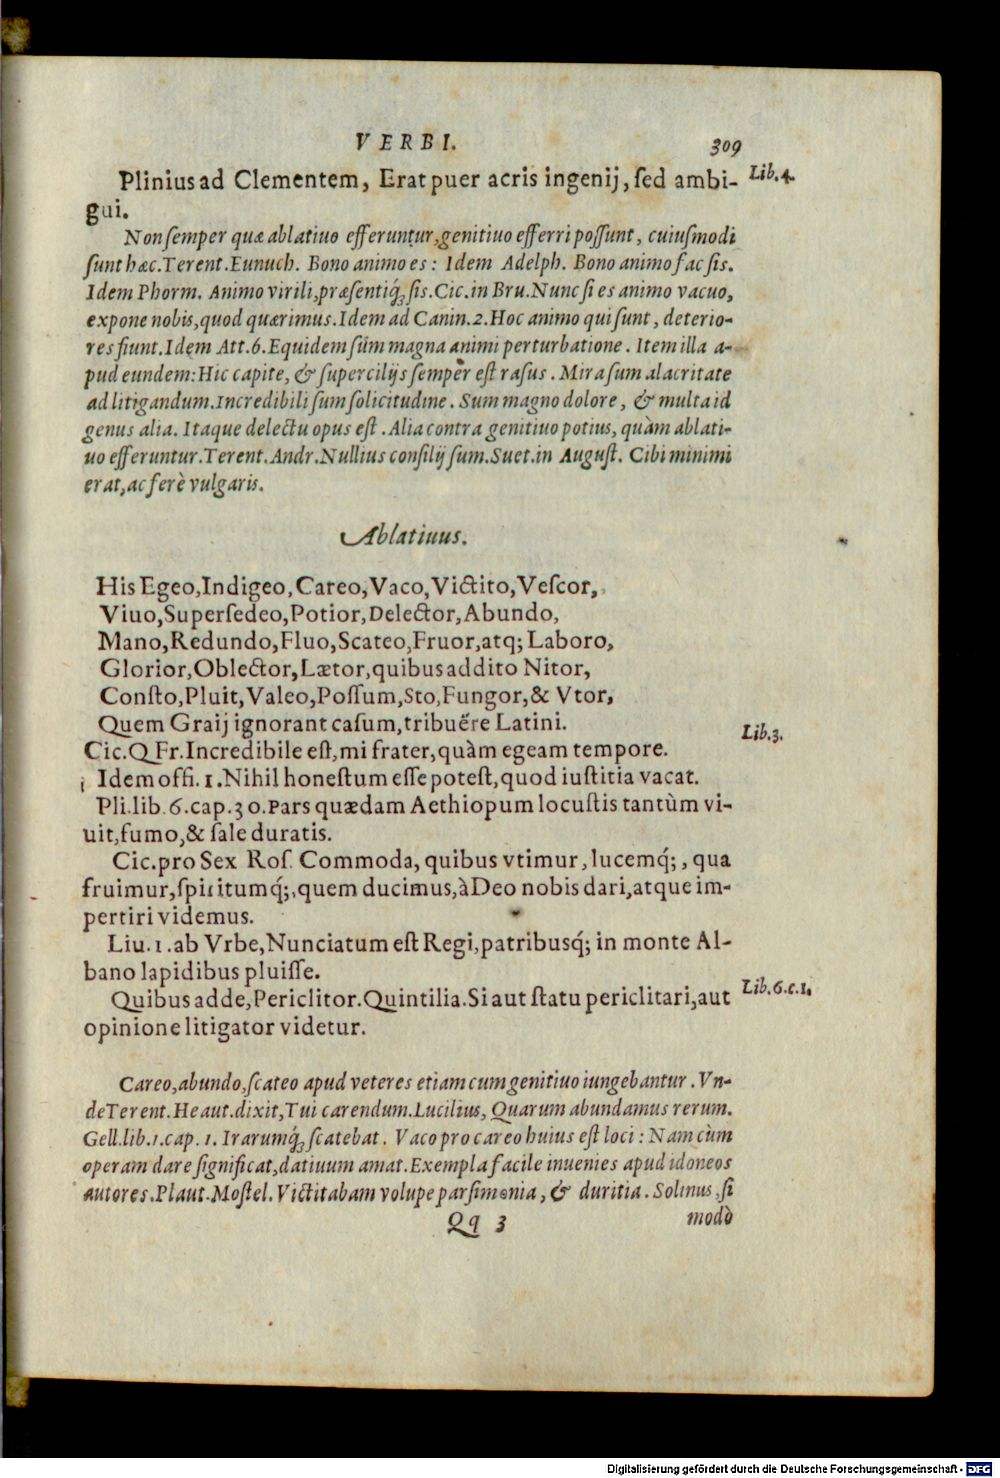 VERBI. 309
Plinius ad Clementem, Erat puer acris ingenij, ſed ambi- Lib.4.
gui.
Non ſemper quæ ablatiuo efferuntur, genitiuo efferri poſſunt, cuiuſmodi
ſunt hæc. Terent. Eunuch. Bono animo es: Idem Adelph. Bono animo fac ſis.
Idem Phorm. Animo virili, præſentiq́; ſis. Cic. in Bru. Nunc ſi es animo vacuo,
expone nobis, quod quærimus. Idem ad Canin. 2. Hoc animo qui ſunt, deterio-
res fiunt. Idem Att. 6. Equidem ſum magna animi perturbatione. Item illa a-
pud eundem: Hic capite, & ſupercilijs ſemper eſt raſus. Mira ſum alacritate
ad litigandum. Incredibili ſum ſolicitudine. Sum magno dolore, & multa id
genus alia. Itaque delectu opus eſt. Alia contra genitiuo potius, quàm ablati-
uo efferuntur. Terent. Andr. Nullius conſilij ſum. Suet. in Auguſt. Cibi minimi
erat, ac ferè vulgaris.
Ablatiuus.
His Egeo, Indigeo, Careo, Vaco, Victito, Veſcor,
Viuo, Superſedeo, Potior, Delector, Abundo,
Mano, Redundo, Fluo, Scateo, Fruor, atq; Laboro,
Glorior, Oblector, Lætor, quibus addito Nitor,
Conſto, Pluit, Valeo, Poſſum, Sto, Fungor, & Vtor,
Quem Graij ignorant caſum, tribuêre Latini.
Cic. Q Fr. Incredibile eſt, mi frater, quàm egeam tempore. Lib.3.
Idem offi. 1. Nihil honeſtum eſſe poteſt, quod iuſtitia vacat.
Pli. lib. 6. cap. 30. Pars quædam Aethiopum locuſtis tantùm vi-
uit, fumo, & ſale duratis.
Cic. pro Sex Roſ. Commoda, quibus vtimur, lucemq́;, qua
fruimur, ſpiritumq́;, quem ducimus, à Deo nobis dari, atque im-
pertiri videmus.
Liu. 1. ab Vrbe, Nunciatum eſt Regi, patribusq́; in monte Al-
bano lapidibus pluiſſe.
Quibus adde, Periclitor. Quintilia. Si aut ſtatu periclitari, aut Lib.6.c.1.
opinione litigator videtur.
Careo, abundo, ſcateo apud veteres etiam cum genitiuo iungebantur. Vn-
de Terent. Heaut. dixit, Tui carendum. Lucilius, Quarum abundamus rerum.
Gell. lib. 1. cap. 1. Irarumq́; ſcatebat. Vaco pro careo huius eſt loci: Nam cùm
operam dare ſignificat, datiuum amat. Exempla facile inuenies apud idoneos
autores. Plaut. Moſtel. Victitabam volupe parſimonia, & duritia. Solinus, ſi
Qq 3 modò
Digitalisierung gefördert durch die Deutsche Forschungsgemeinschaft - DFG